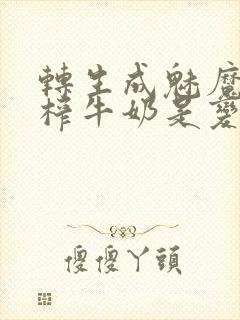 轉生成魅魔
榨牛奶是變
傻傻丫頭